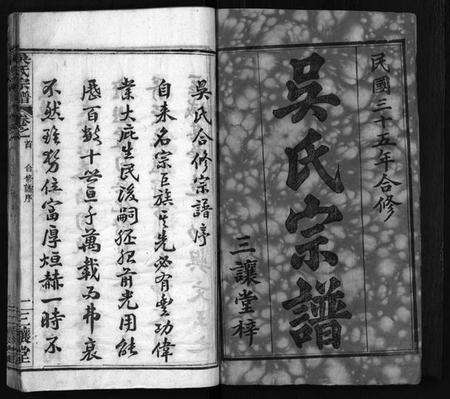 民國三十五年合修
吳氏宗譜
三讓堂梓
吳氏合修宗譜序
自来名宗巨族其先必有豐功偉
業大庇生民後嗣丕振前光用能
歷百数十世亘千萬載而弗衰
不然雖势位富厚烜赫一時不
吳氏宗譜
卷之首
合修譜序
三讓堂